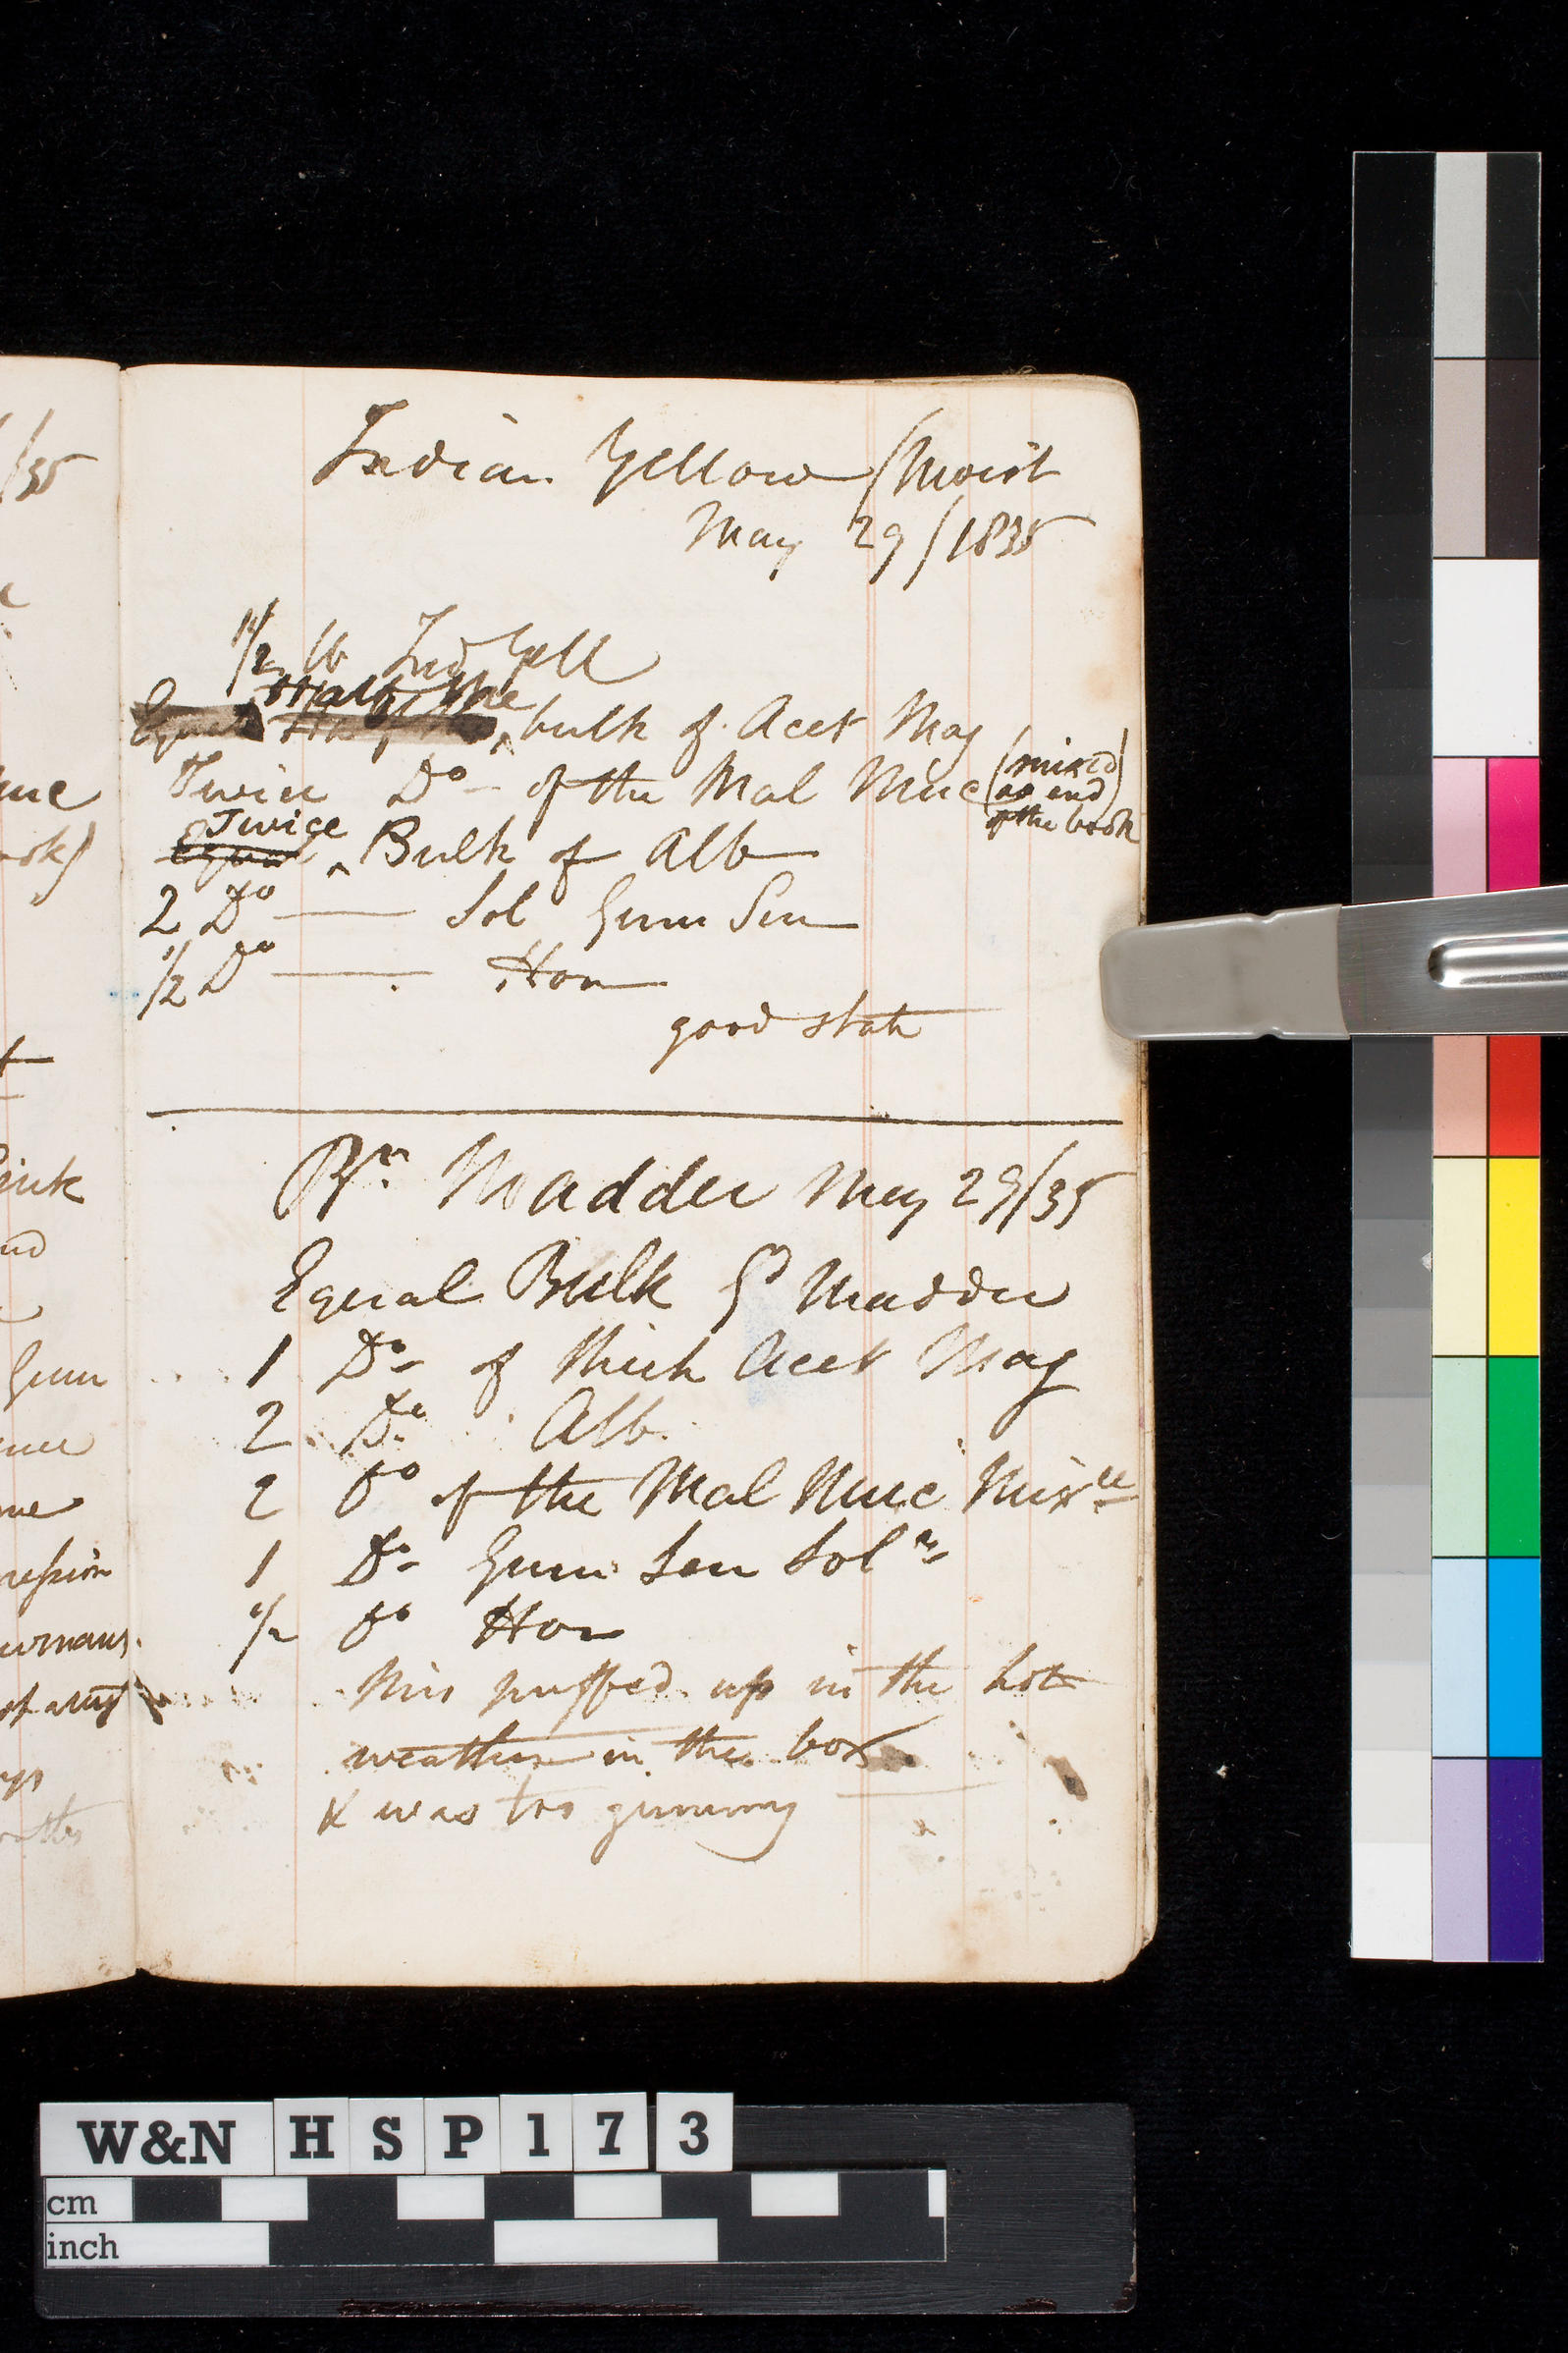 Indian Yellow/Moist
May 29/1835
1 1/2 lb Ind Yell
Half the
Equal bulk of Acet Mag
Twice Do - of the Mal Muc (mixed)
as end)
of the book
Twice
Equal ^ Bulk of Alb
2 Do — Sol Gum Sen
1/2 Do — Hon
good state
Bn. Madder May 29/35
Equal Bulk Gd Madder
1 Do - of thick Acet Mag
2 Do Alb.
2 Do of the Mal Muc Mixre
1 Do - Gum Sen Soln
1/2 Do Hon
This puffed up in the hot
weather in the box
& was too gummy
/35
ook)
ink
Gum
W&N H S P 1 7 3
cm
inch